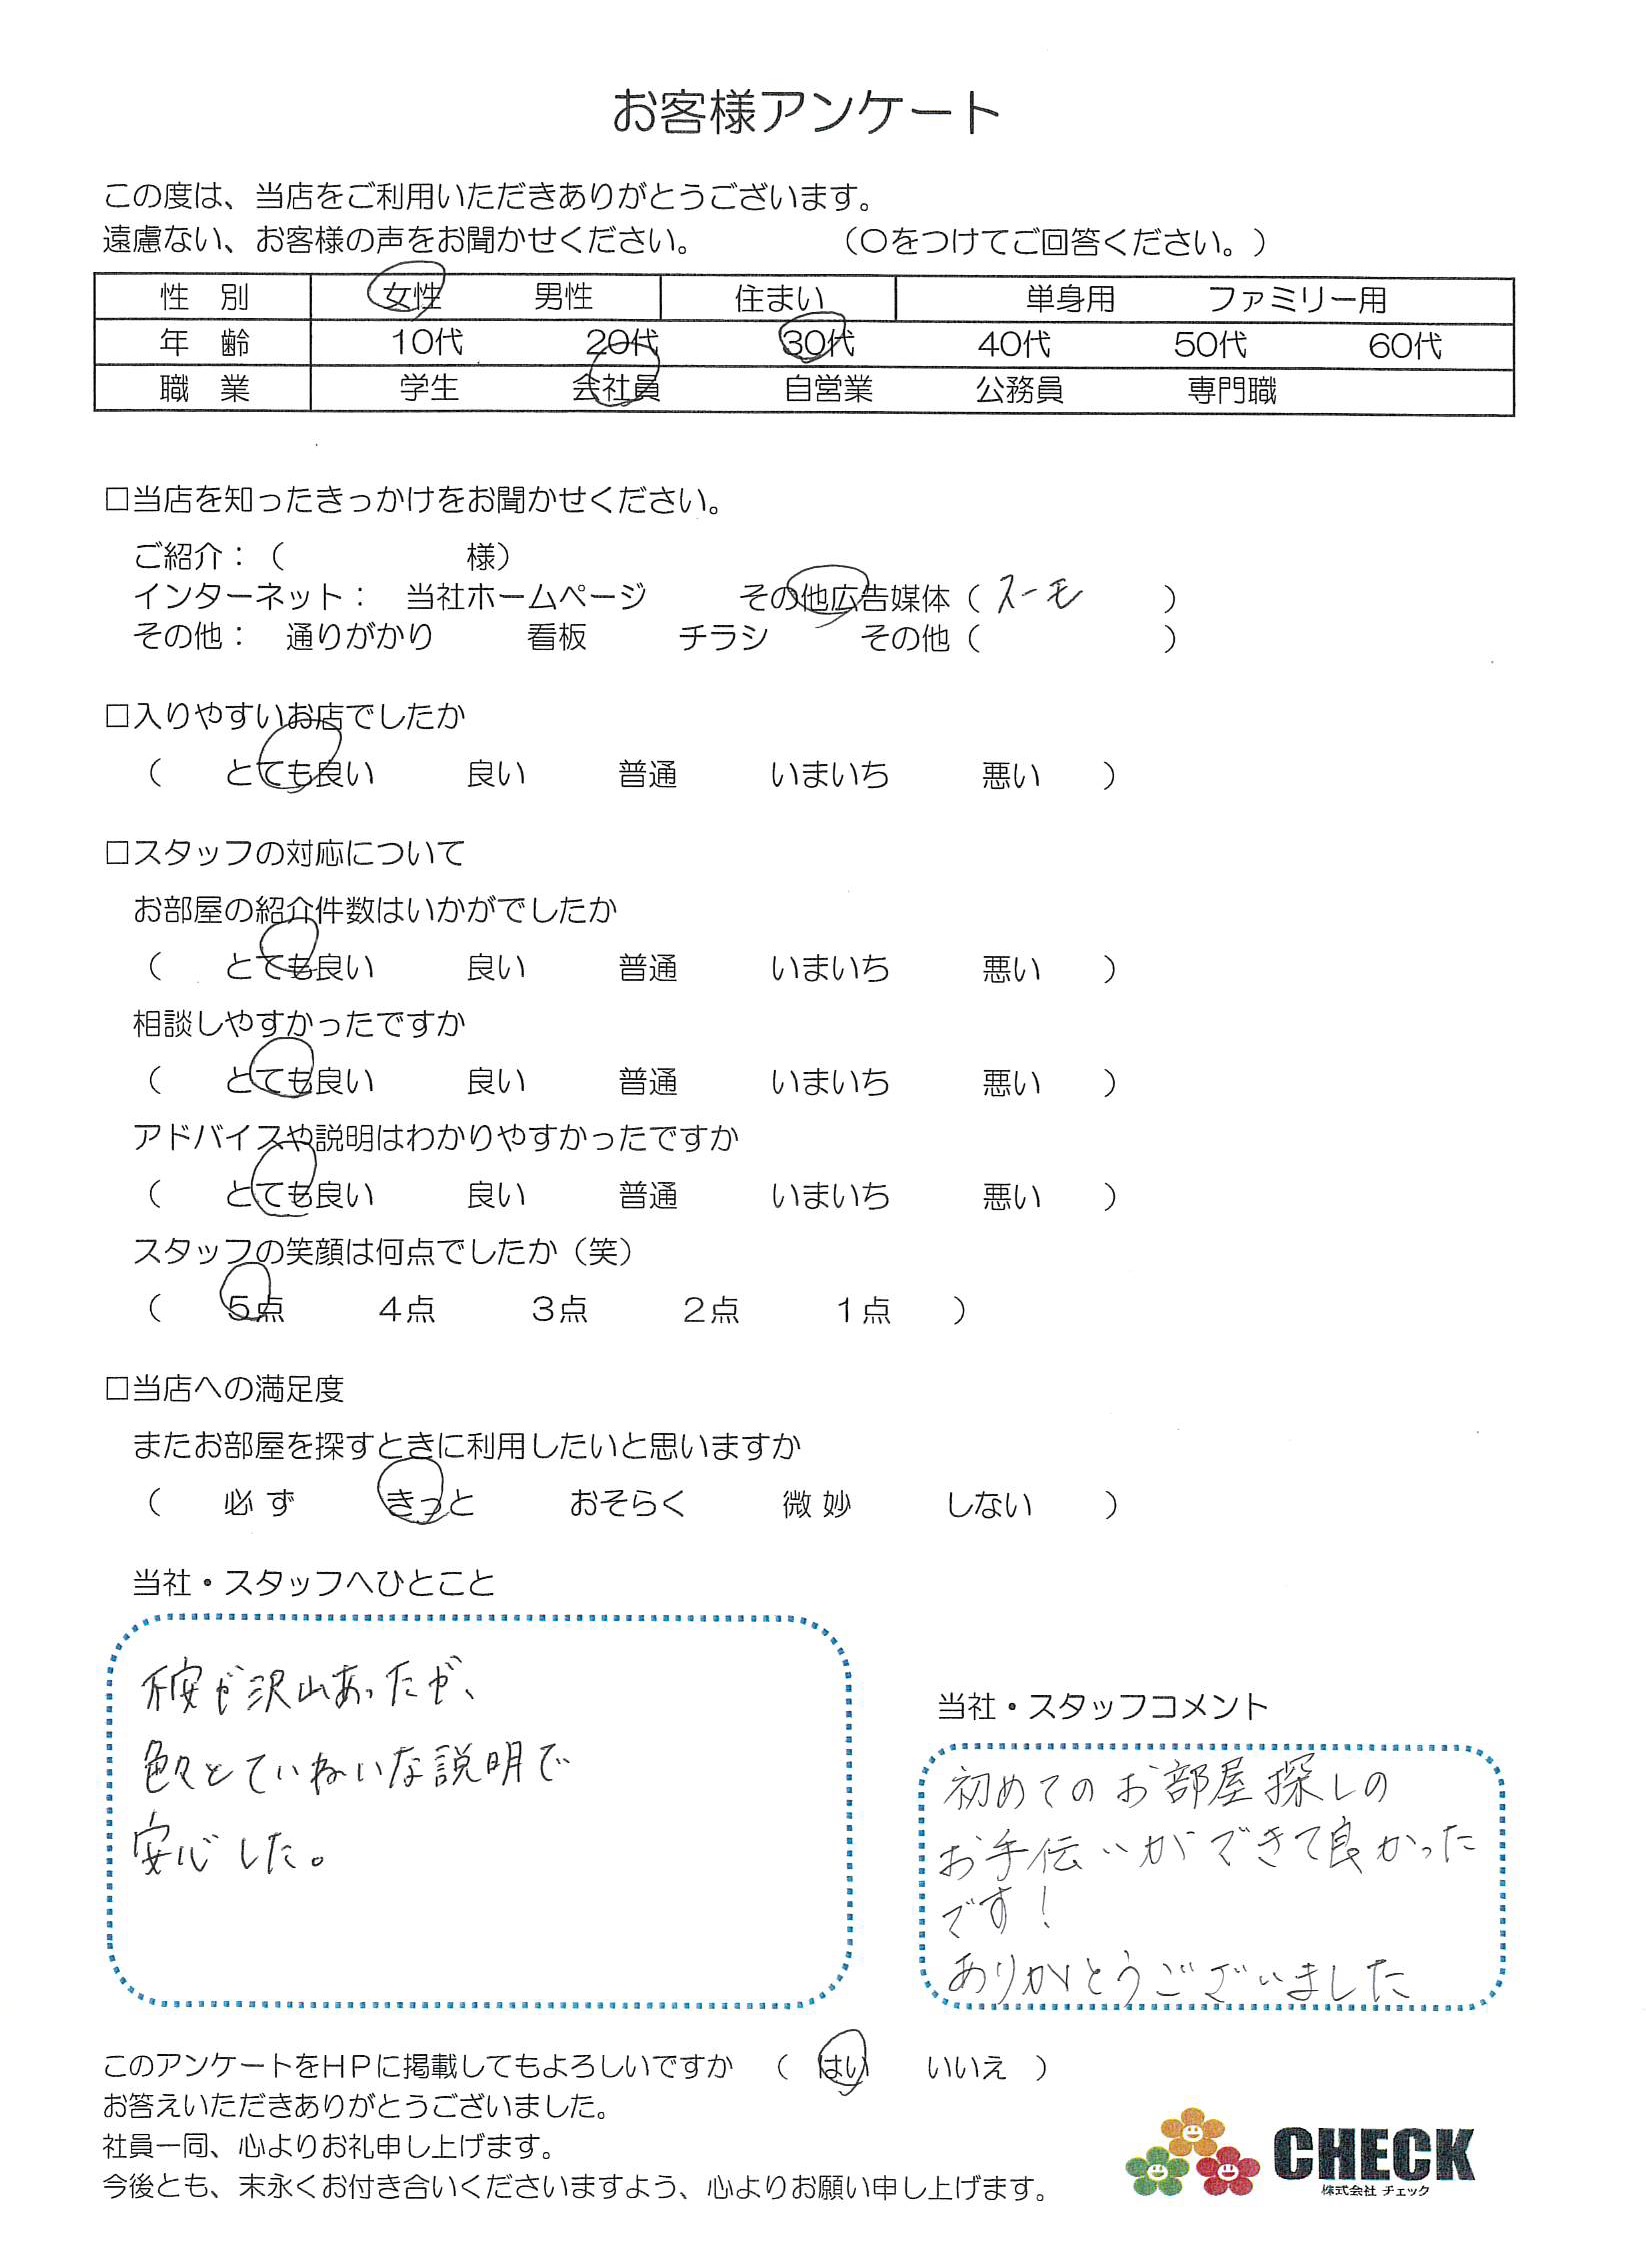 お客様アンケート
この度は、当店をご利用いただきありがとうございます。
遠慮ない、お客様の声をお聞かせください。 （〇をつけてご回答ください。）
性 別 女性 男性 住まい 単身用 ファミリー用
年 齢 10代 20代 30代 40代 50代 60代
職 業 学生 会社員 自営業 公務員 専門職
□当店を知ったきっかけをお聞かせください。
ご紹介：（ 様）
インターネット： 当社ホームページ その他広告媒体（ スーモ ）
その他： 通りがかり 看板 チラシ その他（ ）
□入りやすいお店でしたか
（ とても良い 良い 普通 いまいち 悪い ）
□スタッフの対応について
お部屋の紹介件数はいかがでしたか
（ とても良い 良い 普通 いまいち 悪い ）
相談しやすかったですか
（ とても良い 良い 普通 いまいち 悪い ）
アドバイスや説明はわかりやすかったですか
（ とても良い 良い 普通 いまいち 悪い ）
スタッフの笑顔は何点でしたか（笑）
（ ５点 ４点 ３点 ２点 １点 ）
□当店への満足度
またお部屋を探すときに利用したいと思いますか
（ 必ず きっと おそらく 微妙 しない ）
当社・スタッフへひとこと
不安が沢山あったが、
色々とていねいな説明で
安心した。
当社・スタッフコメント
初めてのお部屋探しの
お手伝いができて良かった
です！
ありがとうございました
このアンケートをＨＰに掲載してもよろしいですか （ はい いいえ ）
お答えいただきありがとうございました。
社員一同、心よりお礼申し上げます。
今後とも、末永くお付き合いくださいますよう、心よりお願い申し上げます。
CHECK
株式会社 チェック